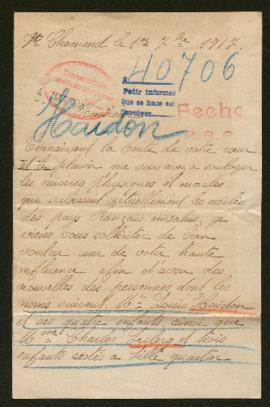 St Chamond le 12 7bre 1917
40706
A
Pedir informes
Que se hace est
Devolver
Fecha
Haudon
Connaissant la bonté de votre cœur
et le plaisir que vous avez à soulager
les misères physiques et morales
que subissent actuellement les exilés
des pays français envahis, je
viens vous solliciter de bien
vouloir user de votre haute
influence afin d'avoir des
nouvelles des personnes dont les
noms suivent Mme Louis Haudon
et ses quatre enfants, ainsi que
Mme Charles Leclerq et trois
enfants restés à Lille quartier